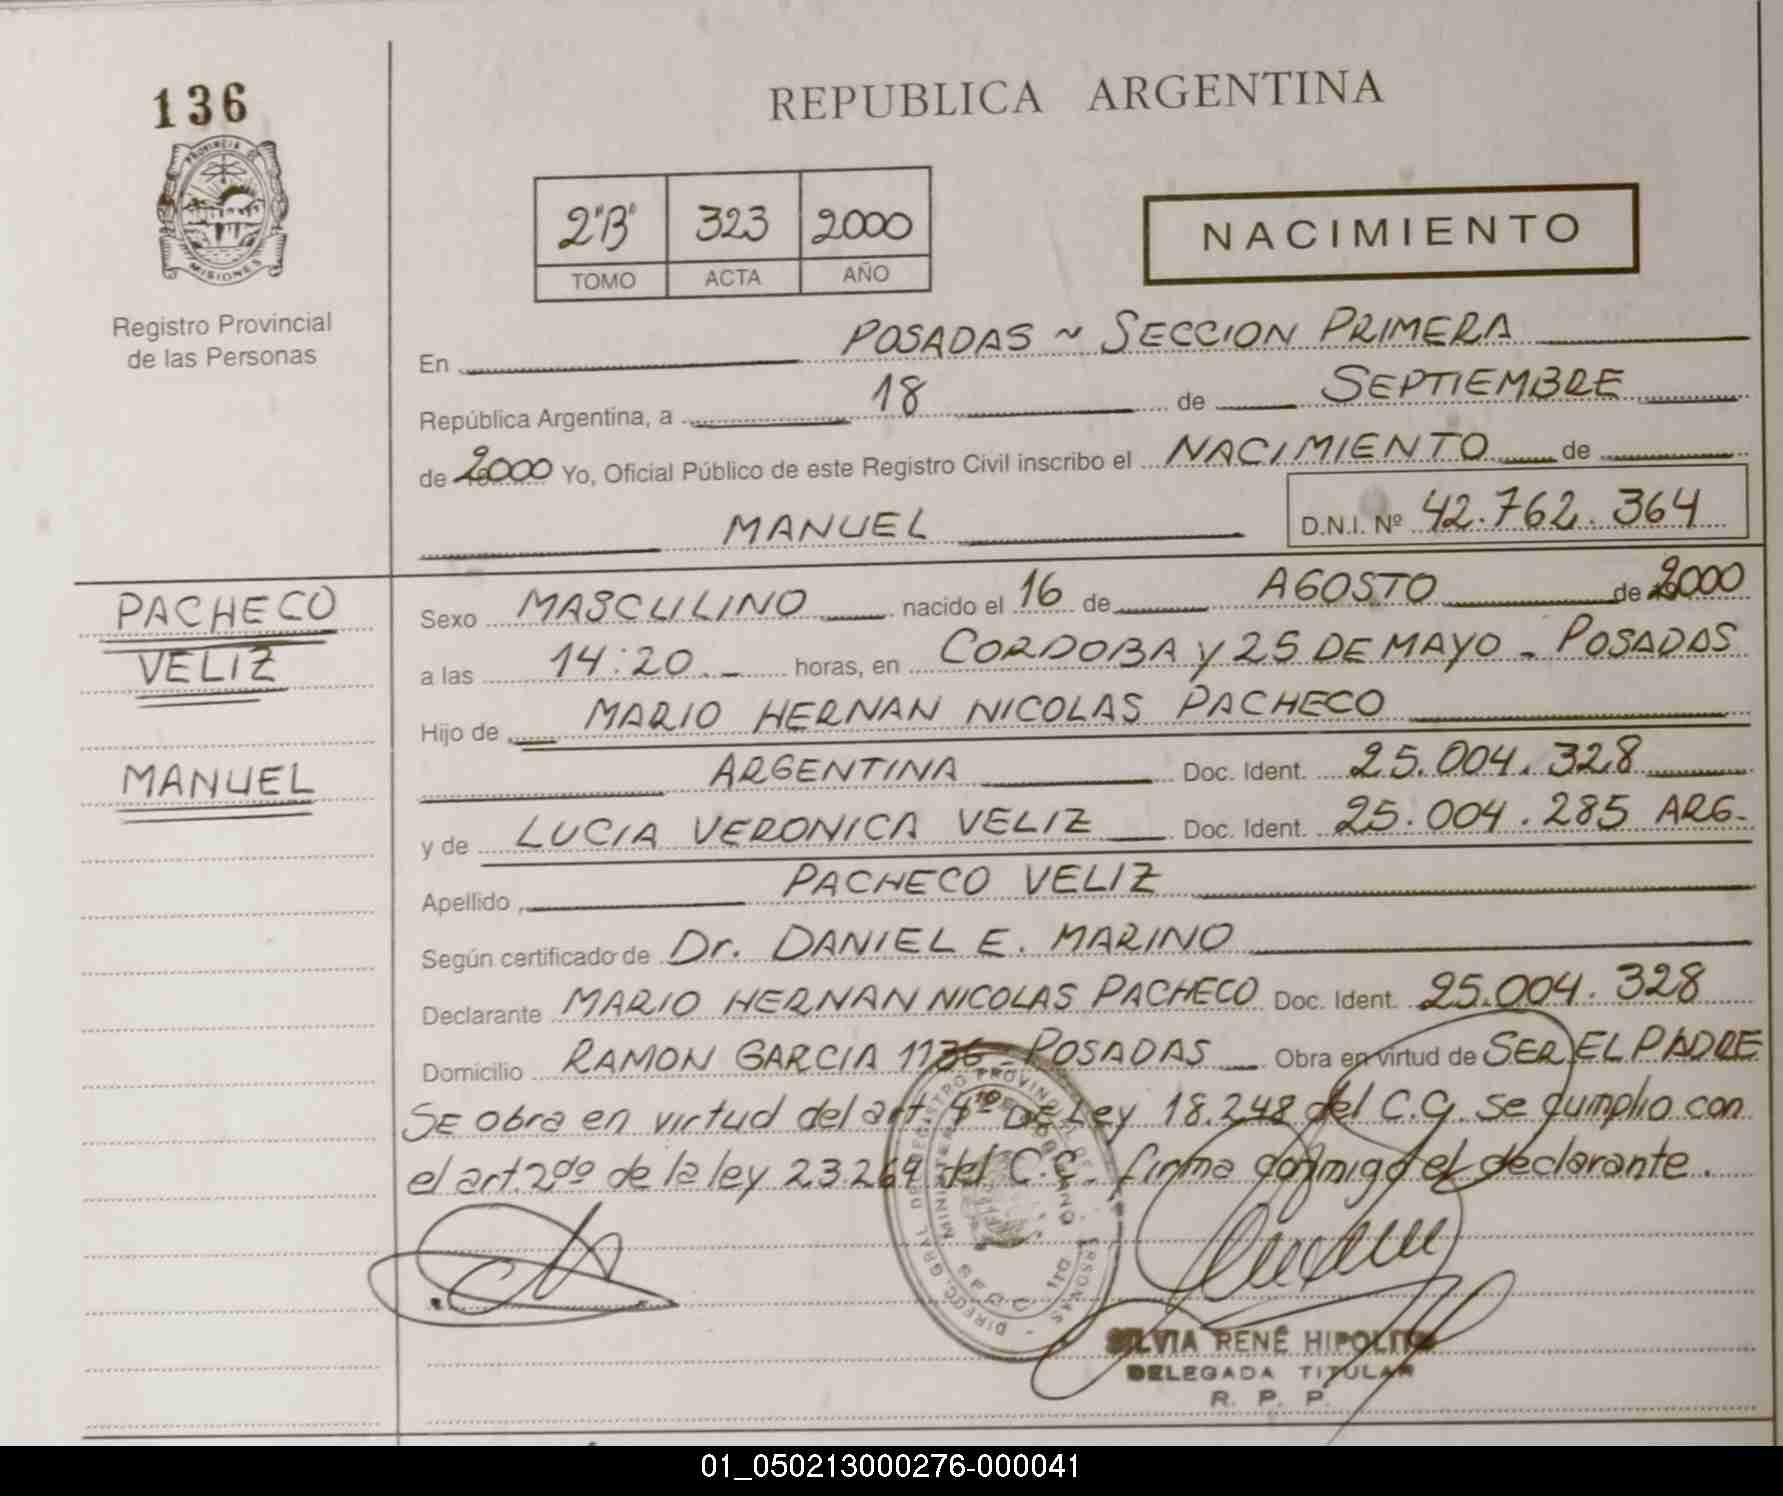 136
PROVINCIA DE
MISIONES
Registro Provincial
de las Personas
REPUBLICA ARGENTINA
2"B" 323 2000
TOMO ACTA AÑO
NACIMIENTO
En POSADAS ~ SECCION PRIMERA
República Argentina, a 18 de SEPTIEMBRE
de 2000 Yo, Oficial Público de este Registro Civil inscribo el NACIMIENTO de
MANUEL D.N.I. Nº 42.762.364
PACHECO
VELIZ
MANUEL
Sexo MASCULINO nacido el 16 de AGOSTO de 2000
a las 14:20.- horas, en CORDOBA y 25 DE MAYO - POSADAS
Hijo de MARIO HERNAN NICOLAS PACHECO
ARGENTINA Doc. Ident. 25.004.328
y de LUCIA VERONICA VELIZ Doc. Ident. 25.004.285 ARG-
Apellido PACHECO VELIZ
Según certificado de Dr. DANIEL E. MARINO
Declarante MARIO HERNAN NICOLAS PACHECO Doc. Ident. 25.004.328
Domicilio RAMON GARCIA 1136 - POSADAS Obra en virtud de SER EL PADRE
SE obra en virtud del art. 4º DE Ley 18.248 del C.C. se cumplio con
el art. 2do de la ley 23.264 del C.C. firma conmigo el declarante.
SILVIA RENÉ HIPOLITO
DELEGADA TITULAR
R. P. P.
01_050213000276-000041